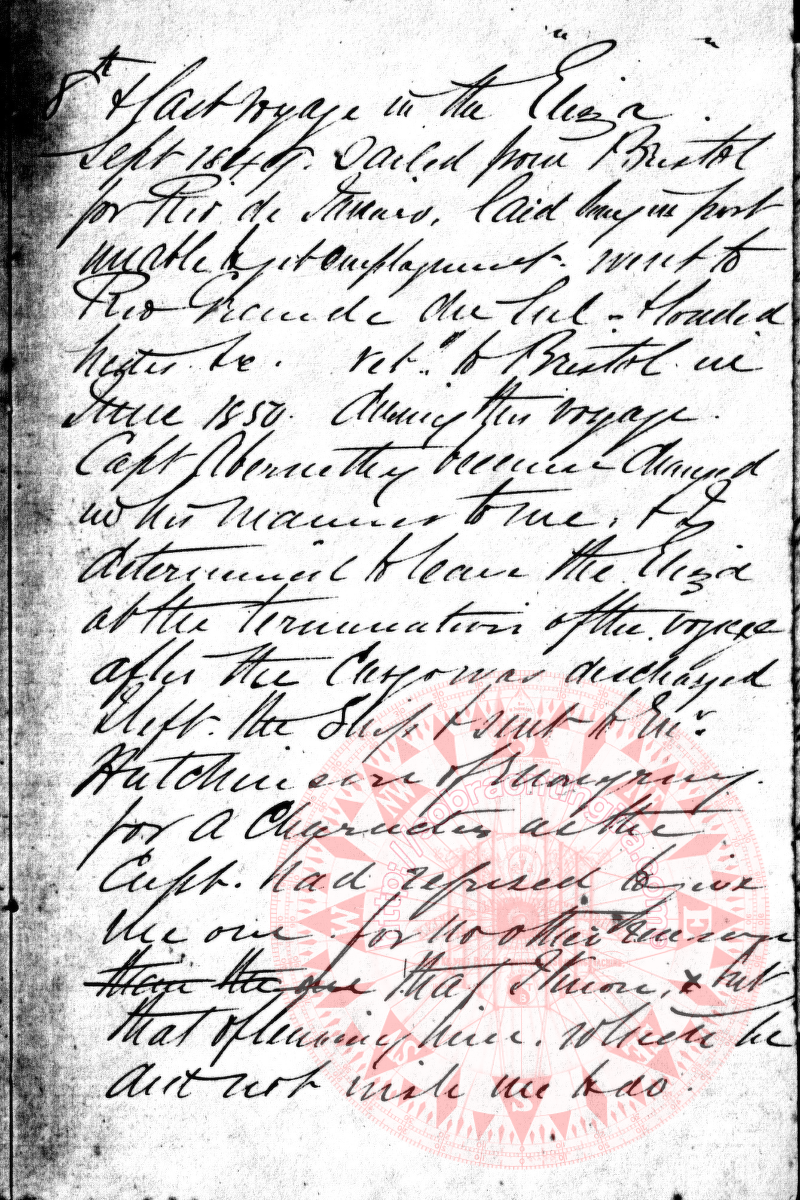 8th & last voyage in the "Eliza".
Sept 1849. Sailed from Bristol
for Rio de Janairo, laid long in port
unable to get employment. went to
Rio Grande du Sul - & loaded
hides &c. retd. to Bristol in
June 1850. during this voyage.
Capt Abernethy became changed
in his manner to me, & I
determined to leave the Eliza
at the termination of the voyage
after the Cargo was discharged
I left the Ship & sent to Mr.
Hutchinson of
for a Character as the
Capt. had refused to give
me one. for no other reason
than the one that I know, but
that of leaving him. which he
did not wish me to do.